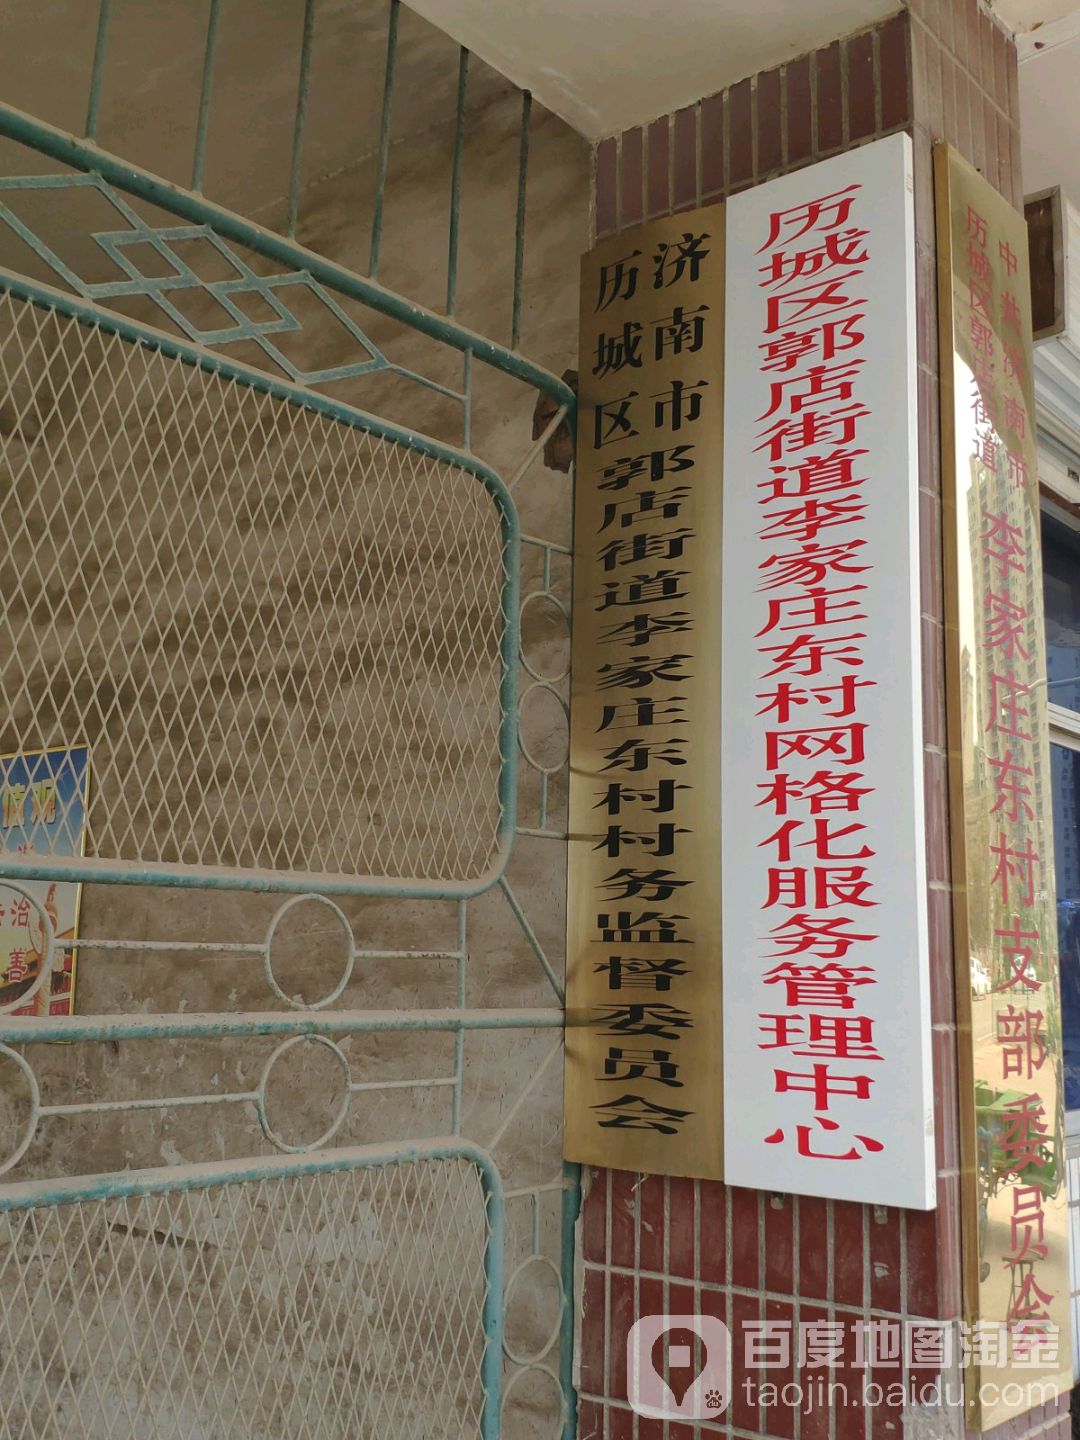 济南市
历城区
郭店街道李家庄东村村务监督委员会
历城区郭店街道李家庄东村网格化服务管理中心
中共济南市
历城区郭店街道
李家庄东村支部委员会
值观
治
善
百度地图淘金
taojin.baidu.com